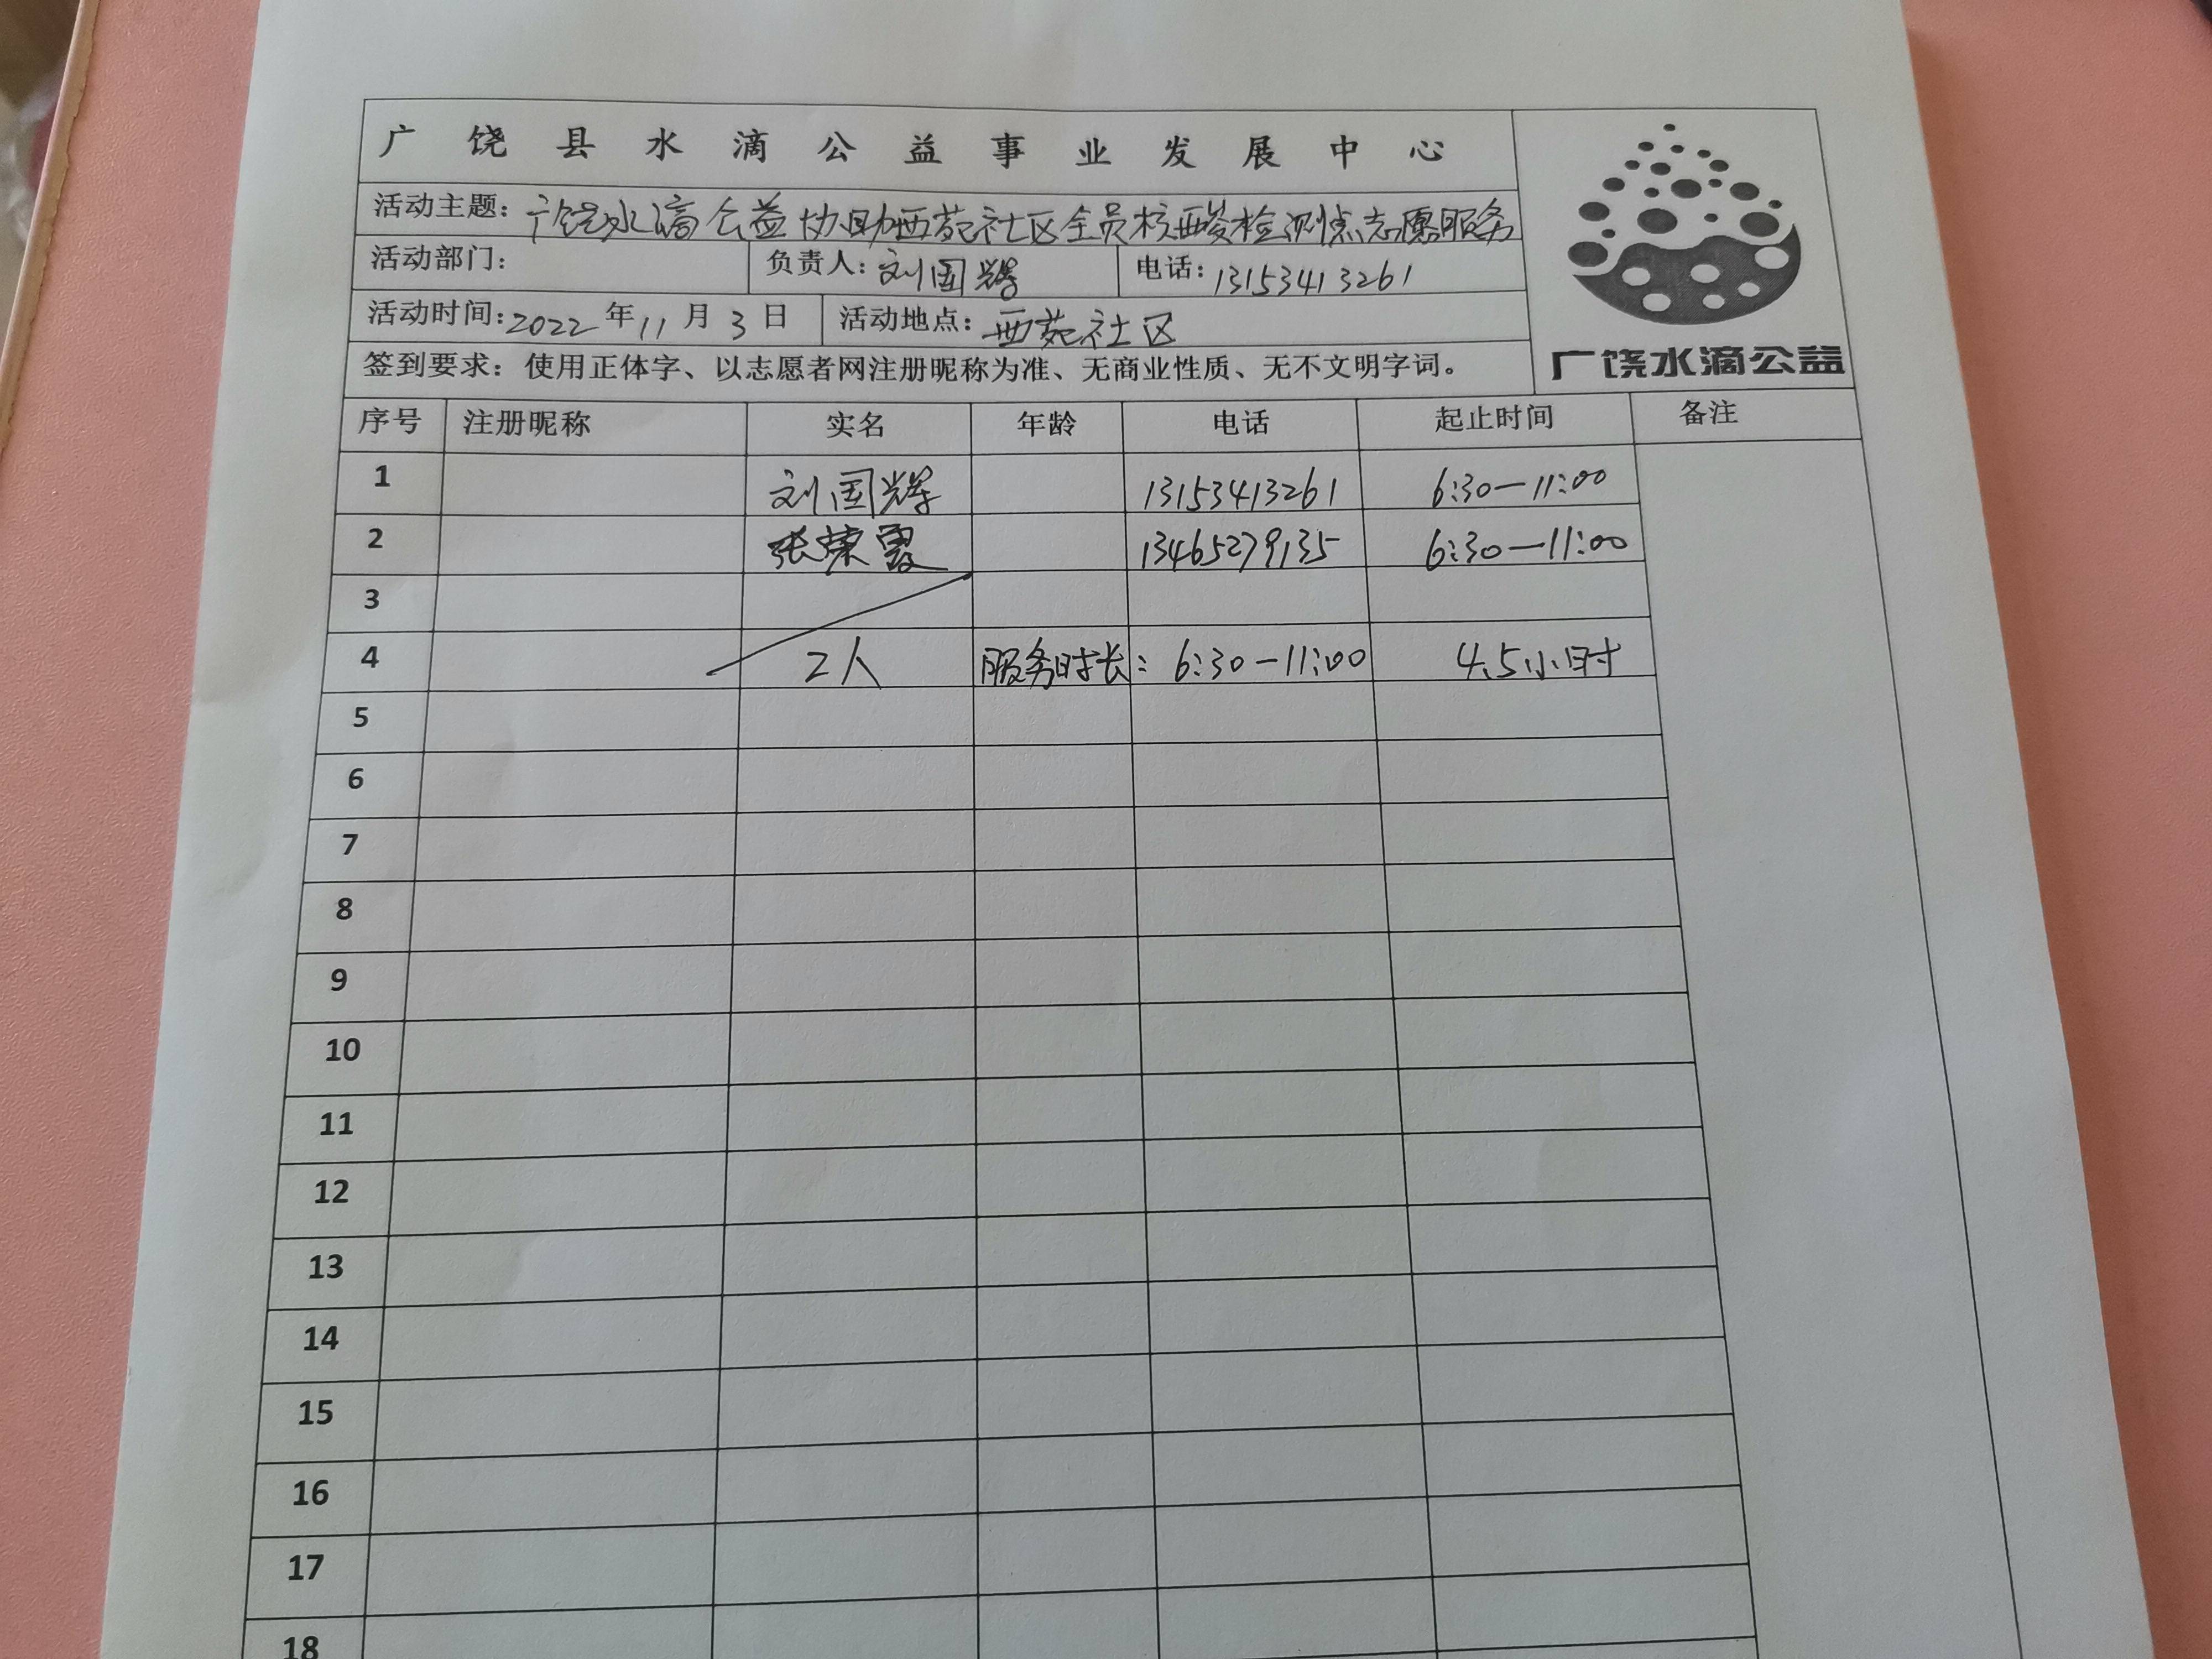 广饶县水滴公益事业发展中心
活动主题：广饶水滴公益协助西苑社区全员核酸检测点志愿服务
活动部门： 负责人：刘国辉 电话：13153413261
活动时间：2022年11月3日 活动地点：西苑社区
签到要求：使用正体字、以志愿者网注册昵称为准、无商业性质、无不文明字词。
广饶水滴公益
序号 注册昵称 实名 年龄 电话 起止时间 备注
1 刘国辉 13153413261 6:30—11:00
2 张荣霞 13465279135 6:30—11:00
3
4 2人 服务时长：6:30—11:00 4.5小时
5
6
7
8
9
10
11
12
13
14
15
16
17
18